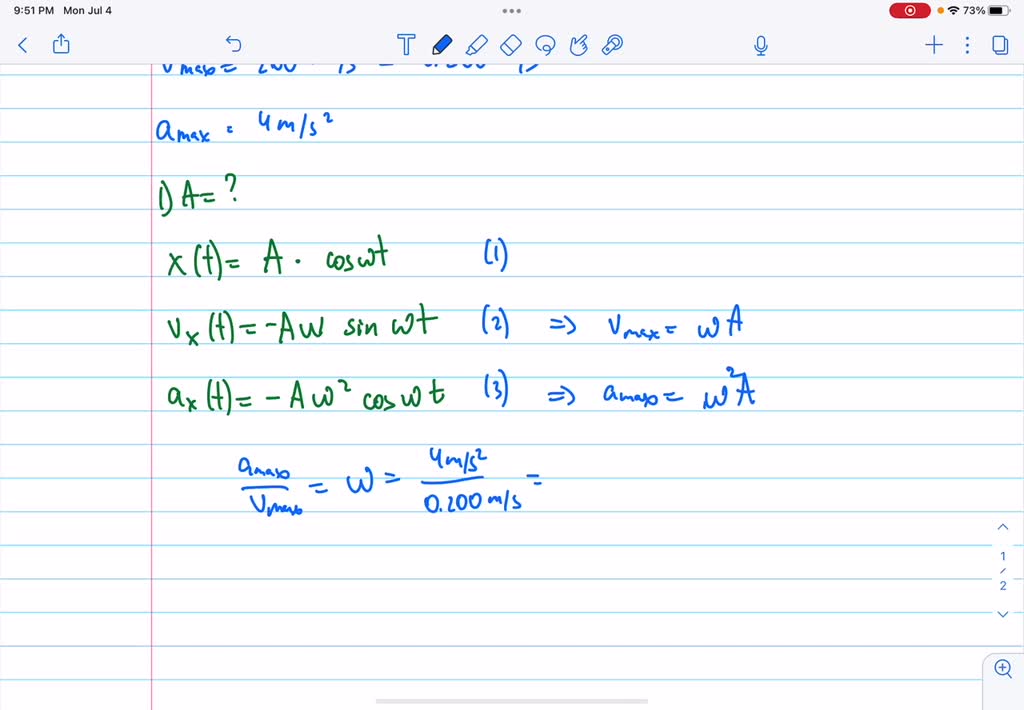 9:51 PM Mon Jul 4
73%
T
a max = 4m/s²
1) A = ?
x(t) = A · cos ωt (1)
Vx(t) = -Aω sin ωt (2) => Vmax = ωA
ax(t) = -Aω² cos ωt (3) => amax = ω²A
amax/Vmax = ω = 4m/s²/0.200 m/s =
1
/
2